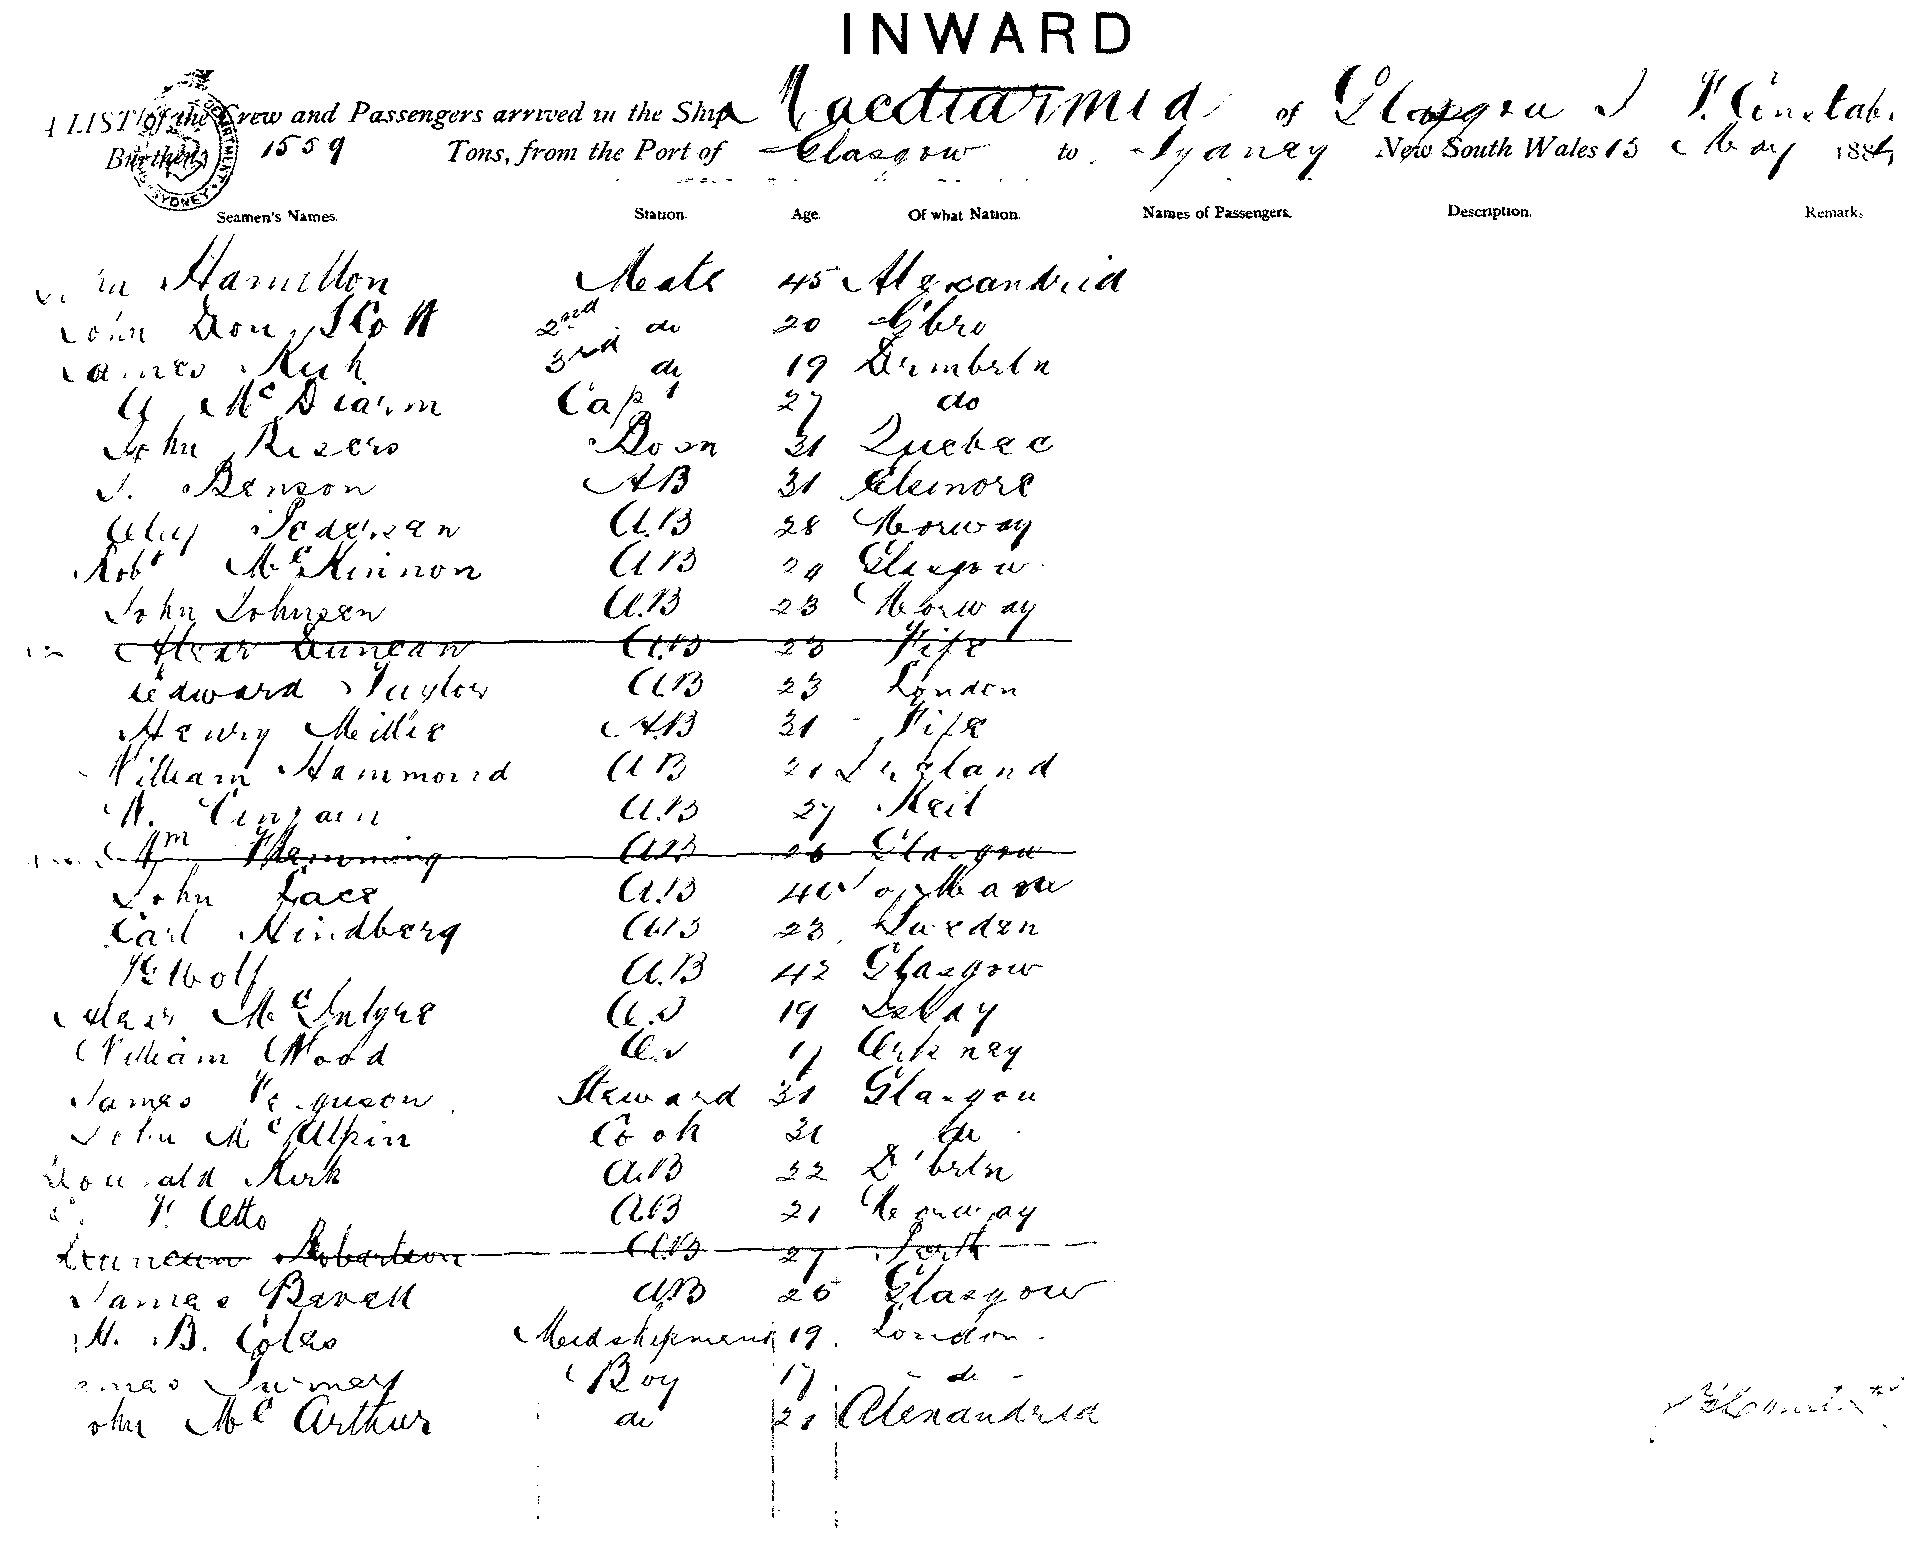 INWARD
A LIST of the Crew and Passengers arrived in the Ship Macdiarmid of Glasgow
Burthen 1559 Tons, from the Port of Glasgow to Sydney New South Wales 13 May 188
Seamen's Names. Station. Age. Of what Nation. Names of Passengers. Description. Remarks
Hamilton Mate 45 Alexandria
John Don Scott 2nd do 20 Gbro
James Kirk 3rd do 19 Dumbrtn
A McDiarm Capt 27 do
John Risers Bosn 31 Quebec
J. Benson AB 31 Elsinore
Pedersen A.B 28 Norway
Robt McKinnon AB 29 Glasgow
John Johnsen A.B 23 Norway
Alexr Duncan A.B 23 Fife
Edward Taylor A.B 23 London
Henry Millie A.B 31 Fife
William Hammond AB 21 Ireland
A.B 27 Keil
Wm Flemming A.B 26 Glasgow
John Cace A.B 40 of Man
Carl Hindberg AB 23 Sweden
A.B 42 Glasgow
Alexr McIntyre O.S 19
William Wood O.S 17 Orkney
James Ferguson Steward 31 Glasgow
John McAlpin Cook 31 do
Donald Kirk A.B 22 D'brtn
F. Otto AB 21 Norway
Duncan Robertson A.B 27 Perth
James Bavell A.B 25 Glasgow
H. B. Coles Midshipman 19 London
Boy 17 do
John McArthur do 21 Alexandria